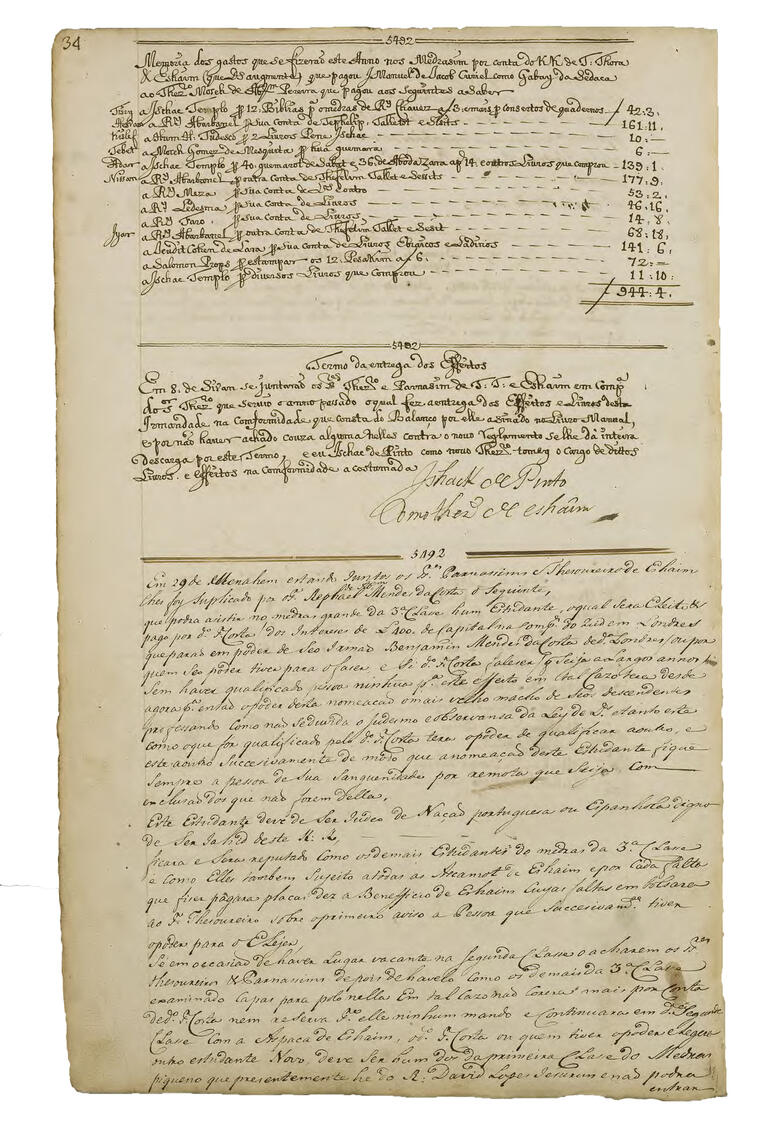 34
5492
Memoria dos gastos que se fizerão este Anno nos Medrasim por conta do KK de T: Thora
& Eshaim (que D.s augmente) que pagou Jmanuel de Jacob Curiel como Gabay da Sedaca
ao Thez.ro Moseh de Pereira que pagou aos seguintes a saber
a Jschac Templo p 12 Biblias p.a o medras de R.y Chavez a 3. e mais p consertos de quadernos 42:3:
a R.y Abarbanel p sua conta de Tephelip. Talletot e Sisits 161:11.
a Tudesco p 2 Livros Pene Jschac 10:—
Tebet a Moseh Gomez de Mesquita p hua guemara 6:—
Adar a Jschac Templo p 40 guemarot de Sabat e 36 de Aboda Zara a f 14. e outros Livros que comprou 139:1
Nissan a R.y Abarbanel p outra conta de Thefelim Tallet e Sissits 177:9.
a R.y Meza p sua conta de L.os 53:2.
a R.y Ledesma p sua conta de Livros 46:16.
a R.y Faro p sua conta de Livros 14:8.
Jyar a R.y Abarbanel p outra conta de Thefelim Tallet e Sisit 68:18.
a Jeudit Cohen de Lara p sua conta de Livros Ebraicos e Ladinos 141:6.
a Salomon Props p estampar os 12. Pesakim a f 6. 72:—
a Jschac Templo p diversos Livros que Comprou 11:10:
944:4.
5492
Termo da entrega dos Effeitos
Em 8. de Sivan se juntarão os S.res Thez.ro e Parnasim de T. T. e Eshaim em Comp.a
do S.r Thez.ro que servio o anno passado o qual fez a entrega dos Effeitos e Livros desta
Jrmandade na Comformidade que consta do Balanço por elle asinado no Livro Manual,
& por não haver achado couza alguma nelles contra o novo Reglamento se lhe dá inteira
descarga por este Termo, e eu Jschac de Pinto como novo Thez.ro tomey o Cargo de dittos
Livros. e Effeitos na Comformidade acostumada
Jshack de Pinto
Como thez.o de eshaim
5492
Em 29 de Menahem estando Juntos os S.res Parnassims e Thesoureiro de Ehaim
lhes foy suplicado por o S.r Rephael Mendes da Costa o Seguinte,
que podra asistir no medras grande da 3.a Classe hum Estudante, o qual sera Eleito, &
pago por d.o S.r Costa dos Interes de L 400. de Capital na Comp.a do Zud em Londres
que parão em poder de Seo Irmão Benjamin Mendes da Costa de d.o Londres, ou por
quem Seo poder tiver para o faser, e Si d.o S.r Costa faleser q Seija a Largos annos
Sem haver qualificado pesoa ninhua p.a este effeito em tal cazo tera desde
agora p.a então o poder desta nomeação o mais velho macho de Seos descendentes
professando como não se duvida o Judesmo e observansa da Ley de D.s e tanto este
como o que for qualificado pelo d.o S.r Costa tera o poder de qualificar a outro, e
este a outro Succesivamente de modo que a nomeação deste Estudante fique
Sempre a pesoa de Sua Sanguenidade por remota que Seija Com
exclusão dos que não forem della,
Este Estudante deve de Ser Judeo de Nação portuguesa ou Espanhola digno
de Ser Jahid deste K: K,
ficara e Sera reputado Como os demais Estudantes do medras da 3.a Classe
e Como Elles tambem Sujeito a todas as Ascamot de Eshaim e por Cada falta
que fiser pagara placas dez a Beneffisio de Eshaim Cujas faltas embolsara
ao S.r Thesoureiro Sobre o primeiro aviso a Pesoa que Succesivam.te tiver
o poder para o Elejer
Se em occasião de haver Lugar vacante na Segunda Classe o acharem os S.res
thesoureiro & Parnasims depois de havelo Como os demais da 3.a Classe
examinado Capas para polo nella Em tal Cazo não Corera mais por Conta
de d.o S.r Costa nem reserva S.re elle ninhum mando e Continuara em d.a Segunda
Classe Com a Aspaca de Eshaim, o d.o S.r Costa ou quem tiver o poder Elegera
outro estudante Novo, deve Ser hum dos da primeira Classe do Medras
piqueno que presentemente he do R: David Lopes Jesurun e não podra
entrar